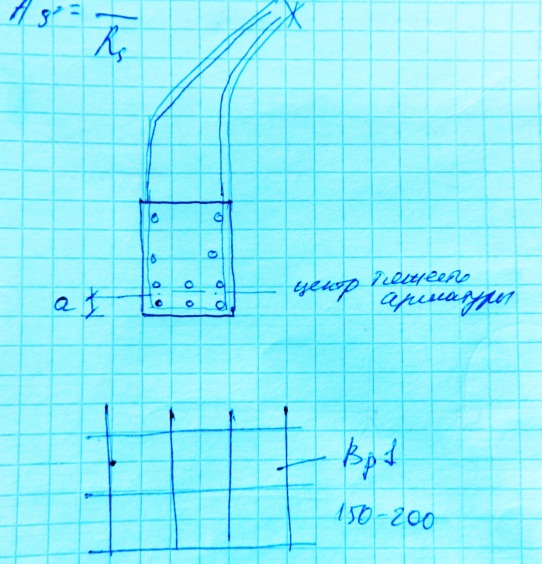 As =
Rs
центр тяжести
арматуры
a
Вр1
150-200